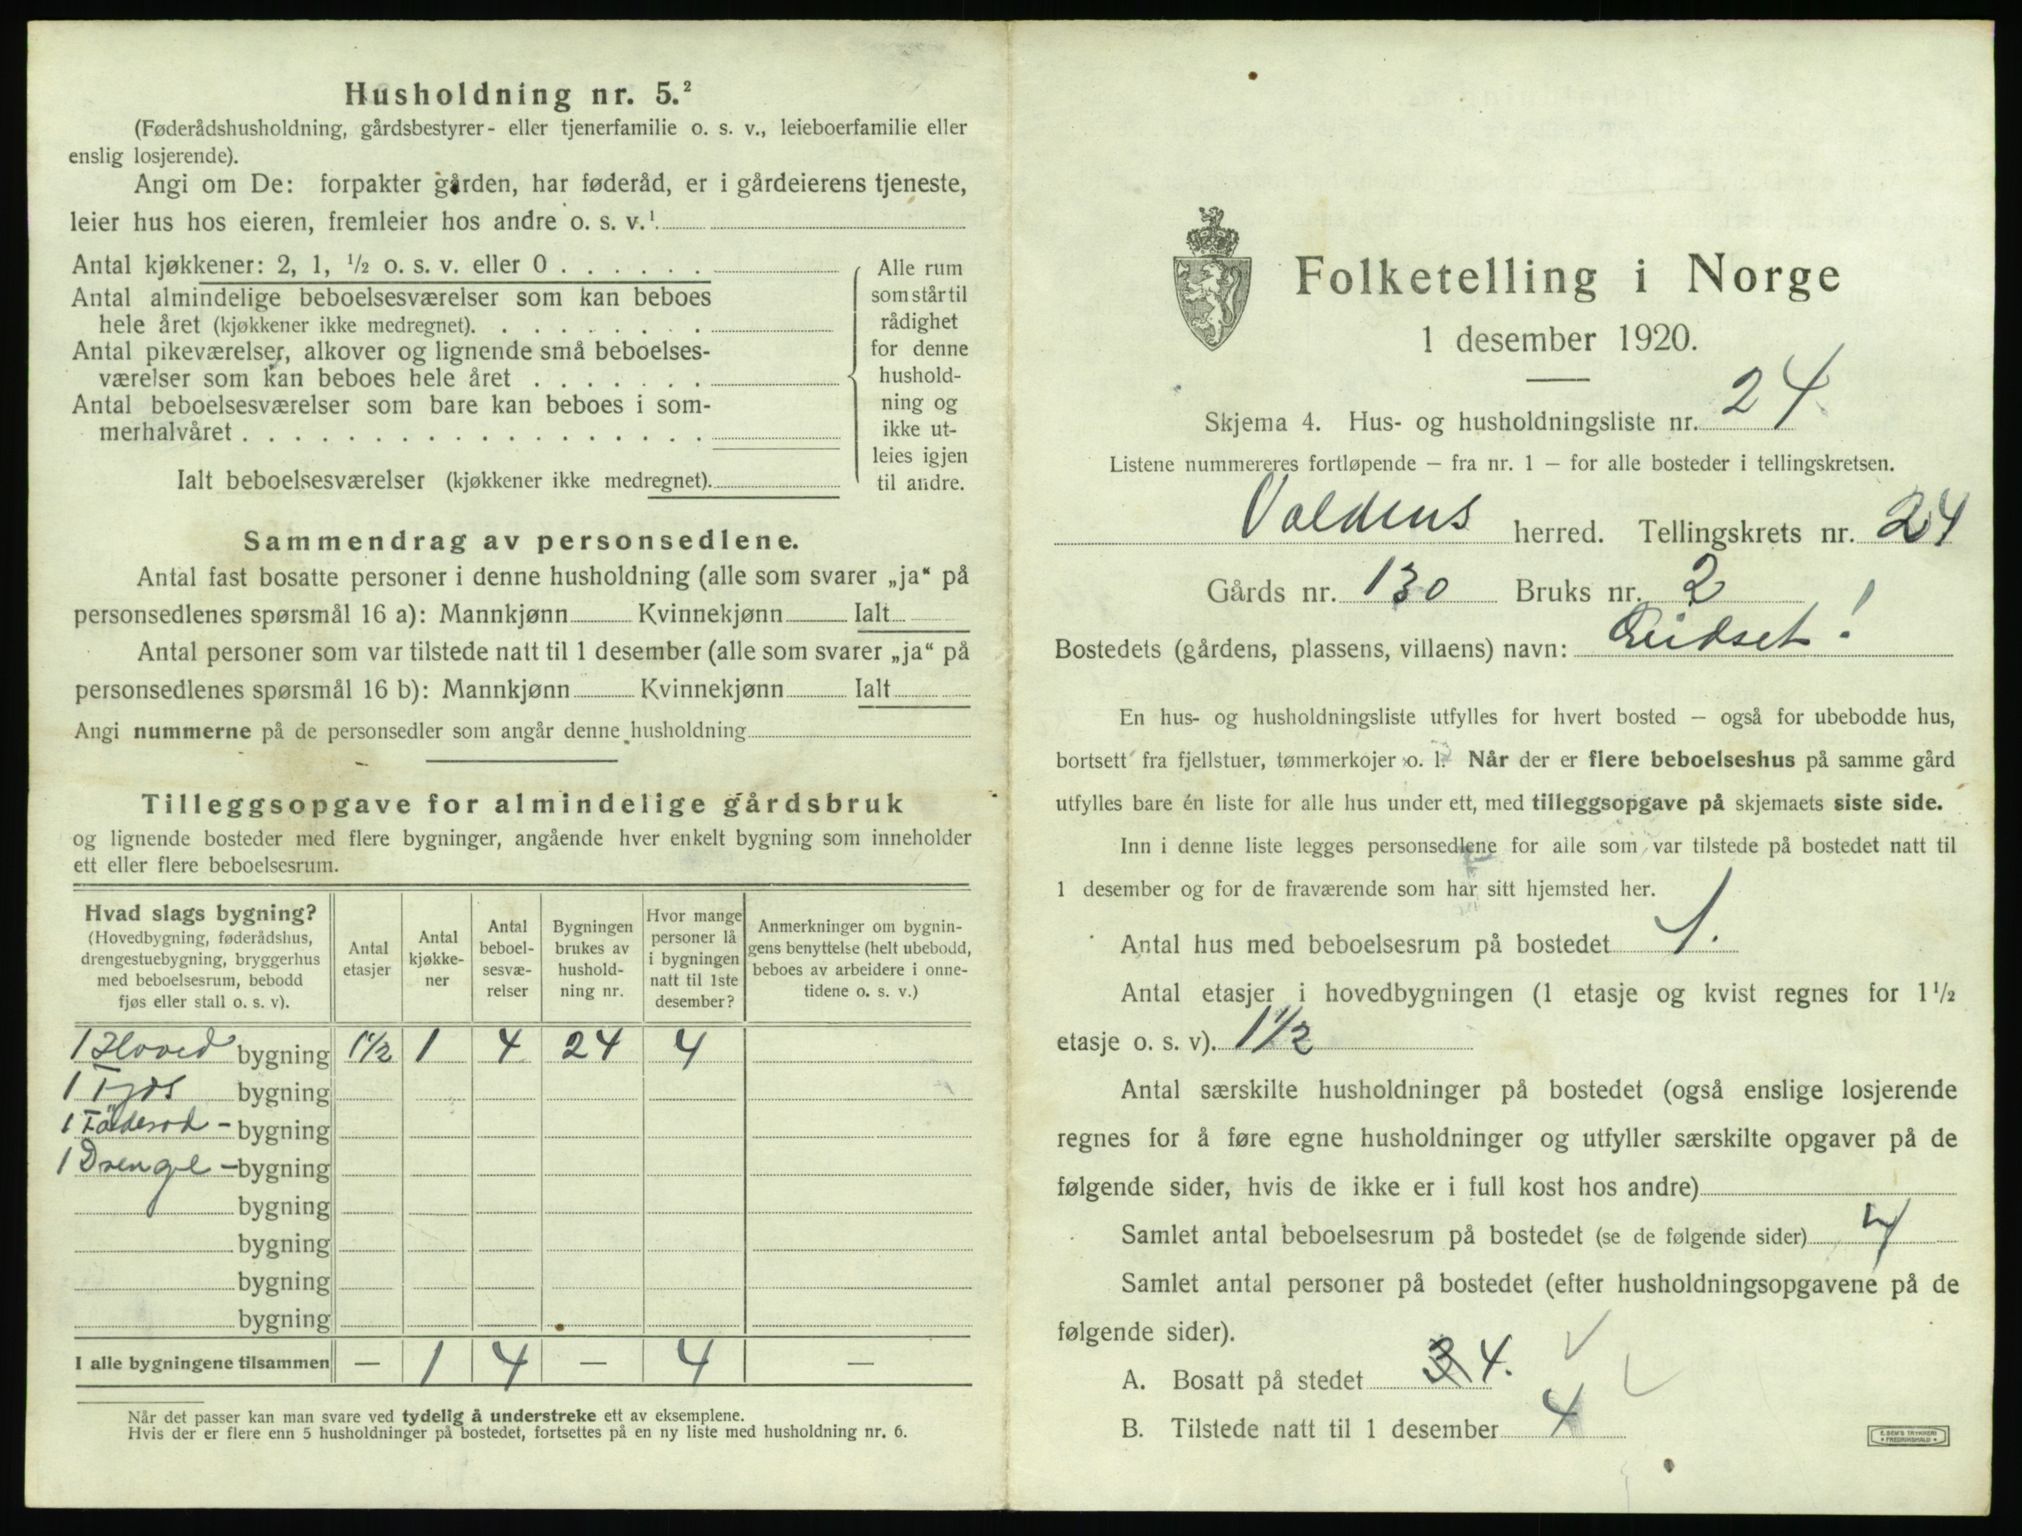 Husholdning nr. 5.²
(Føderådshusholdning, gårdsbestyrer- eller tjenerfamilie o. s. v., leieboerfamilie eller
enslig losjerende).
Angi om De: forpakter gården, har føderåd, er i gårdeierens tjeneste,
leier hus hos eieren, fremleier hos andre o. s. v.¹
Antal kjøkkener: 2, 1, ½ o. s. v. eller 0 . . . . . .
Antal almindelige beboelsesværelser som kan beboes
hele året (kjøkkener ikke medregnet). . . . . . . . .
Antal pikeværelser, alkover og lignende små beboelses-
værelser som kan beboes hele året . . . . . . .
Antal beboelsesværelser som bare kan beboes i som-
merhalvåret . . . . . . . . . . . . . . . . . .
Ialt beboelsesværelser (kjøkkener ikke medregnet).
Alle rum
som står til
rådighet
for denne
hushold-
ning og
ikke ut-
leies igjen
til andre.
Sammendrag av personsedlene.
Antal fast bosatte personer i denne husholdning (alle som svarer „ja“ på
personsedlenes spørsmål 16 a): Mannkjønn Kvinnekjønn Ialt
Antal personer som var tilstede natt til 1 desember (alle som svarer „ja“ på
personsedlenes spørsmål 16 b): Mannkjønn Kvinnekjønn Ialt
Angi nummerne på de personsedler som angår denne husholdning
Tilleggsopgave for almindelige gårdsbruk
og lignende bosteder med flere bygninger, angående hver enkelt bygning som inneholder
ett eller flere beboelsesrum.
Hvad slags bygning?
(Hovedbygning, føderådshus,
drengestuebygning, bryggerhus
med beboelsesrum, bebodd
fjøs eller stall o. s. v).
Antal
etasjer
Antal
kjøkke-
ner
Antal
beboel-
sesvæ-
relser
Bygningen
brukes av
hushold-
ning nr.
Hvor mange
personer lå
i bygningen
natt til 1ste
desember?
Anmerkninger om bygnin-
gens benyttelse (helt ubebodd,
beboes av arbeidere i onne-
tidene o. s. v.)
1 Hoved bygning 1½ 1 4 24 4
1 Fjøs bygning
1 Föderod - bygning
1 Drenge - bygning
bygning
bygning
bygning
bygning
I alle bygningene tilsammen — 1 4 — 4 —
Når det passer kan man svare ved tydelig å understreke ett av eksemplene.
Hvis der er flere enn 5 husholdninger på bostedet, fortsettes på en ny liste med husholdning nr. 6.
Folketelling i Norge
1 desember 1920.
Skjema 4. Hus- og husholdningsliste nr. 24.
Listene nummereres fortløpende — fra nr. 1 — for alle bosteder i tellingskretsen.
Voldens herred. Tellingskrets nr. 24
Gårds nr. 130 Bruks nr. 2
Bostedets (gårdens, plassens, villaens) navn: Eidset!
En hus- og husholdningsliste utfylles for hvert bosted — også for ubebodde hus,
bortsett fra fjellstuer, tømmerkojer o. l. Når der er flere beboelseshus på samme gård
utfylles bare én liste for alle hus under ett, med tilleggsopgave på skjemaets siste side.
Inn i denne liste legges personsedlene for alle som var tilstede på bostedet natt til
1 desember og for de fraværende som har sitt hjemsted her.
Antal hus med beboelsesrum på bostedet 1.
Antal etasjer i hovedbygningen (1 etasje og kvist regnes for 1½
etasje o. s. v). 1½
Antal særskilte husholdninger på bostedet (også enslige losjerende
regnes for å føre egne husholdninger og utfyller særskilte opgaver på de
følgende sider, hvis de ikke er i full kost hos andre)
Samlet antal beboelsesrum på bostedet (se de følgende sider) 4
Samlet antal personer på bostedet (efter husholdningsopgavene på de
følgende sider).
A. Bosatt på stedet 3 4.
B. Tilstede natt til 1 desember 4
E. SEM'S TRYKKERI
FREDRIKSHALD